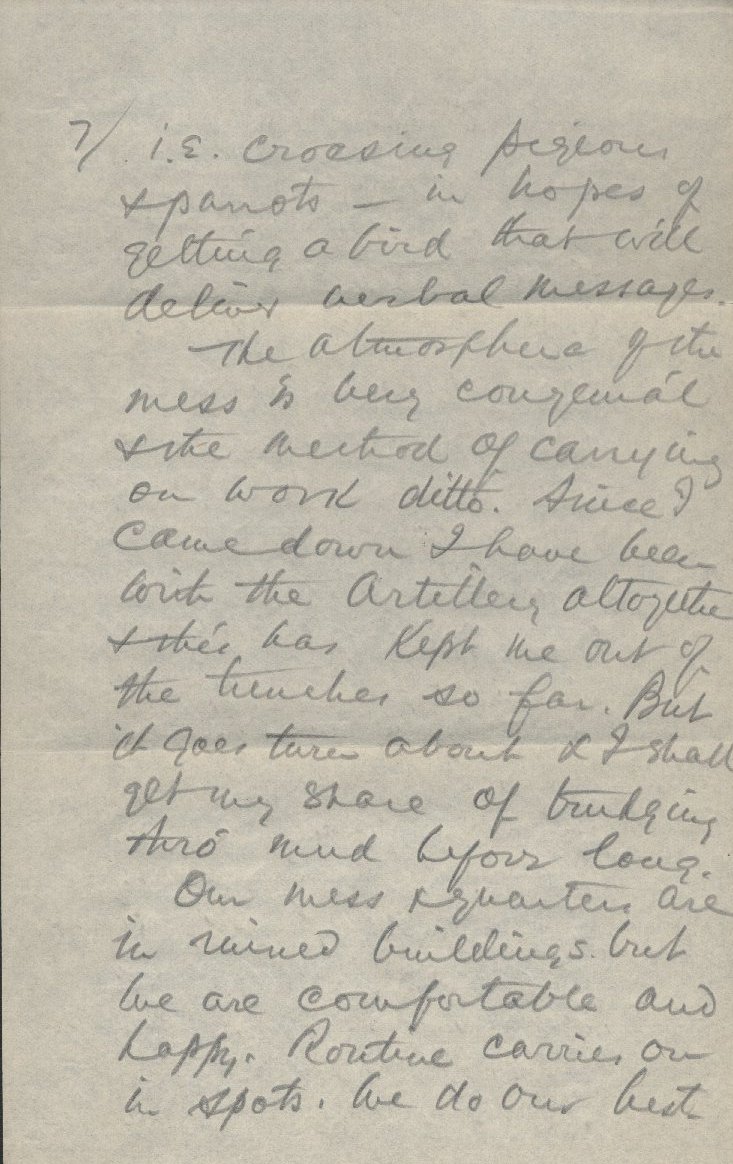 7/ i.e. crossing pigeons
& parrots – in hopes of
getting a bird that will
deliver verbal messages.
The atmosphere of the
mess is very congenial
& the method of carrying
on work ditto. Since I
came down I have been
with the Artillery altogether
& this has kept me out of
the trenches so far. But
it goes turn about & I shall
get my share of trudging
thro' mud before long.
Our mess & quarters are
in ruined buildings. but
we are comfortable and
happy. Routine carries on
in spots. We do our best